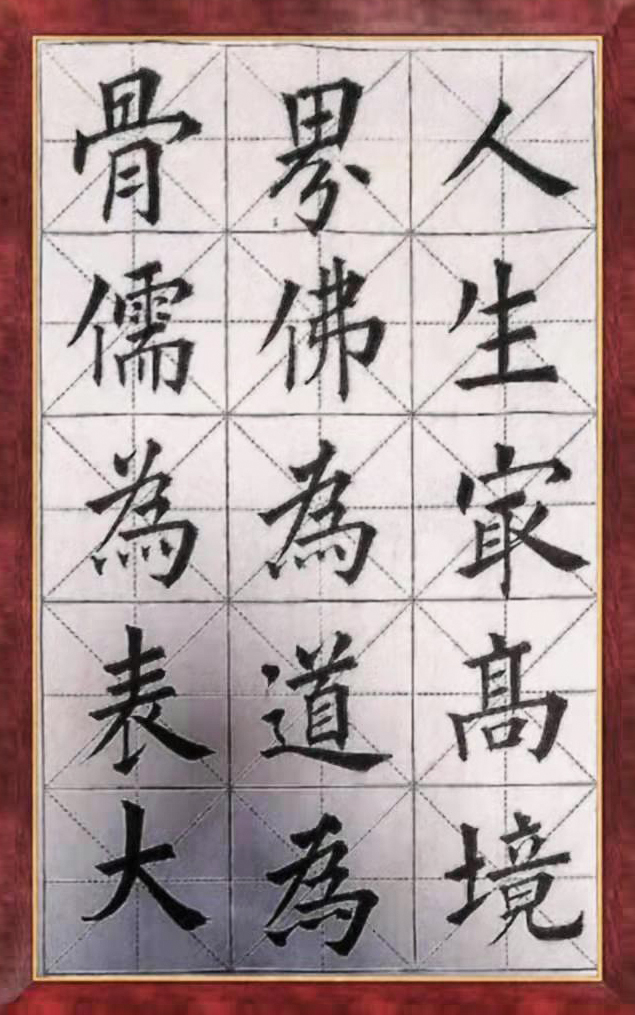 人生冣髙境
界佛為道為
骨儒為表大